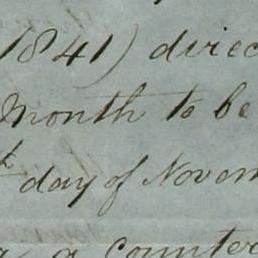 1841) direc
month to be
day of Novem
a counter